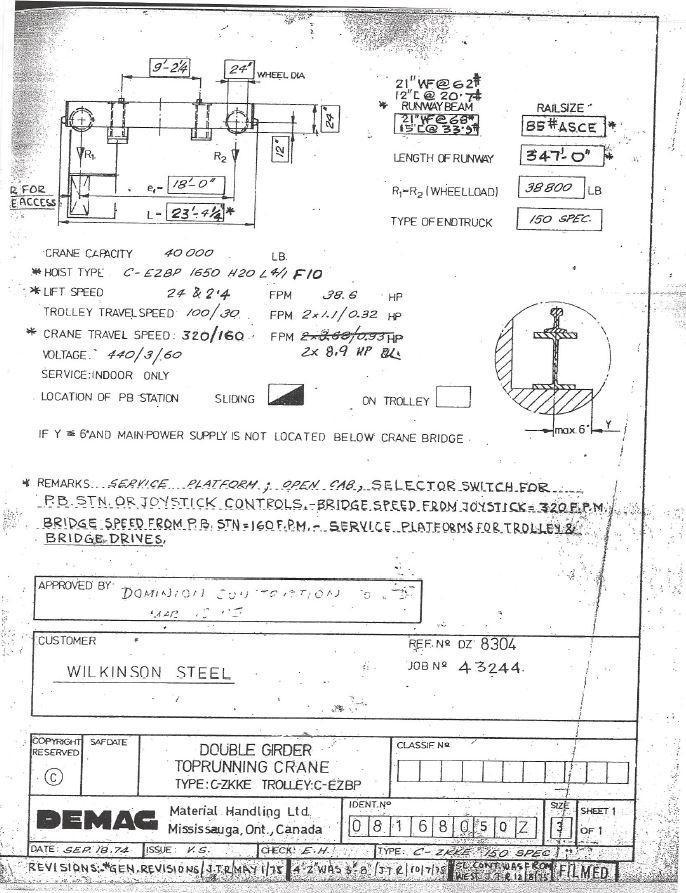 9'-2¼
24"
WHEEL DIA
24"
12"
R₁
R₂
R FOR
E ACCESS
e₁= 18'-0"
L= 23'-4¼" *
21" WF @ 62#
12"[ @ 20.7#
* RUNWAY BEAM
21" WF @ 68#
15"[ @ 33.9#
RAILSIZE
85# ASCE *
LENGTH OF RUNWAY 347'-0" *
R₁=R₂ (WHEELLOAD) 38800 LB
TYPE OF ENDTRUCK 150 SPEC.
CRANE CAPACITY 40000 LB.
* HOIST TYPE C-EZBP 1650 H20 L4/1 F10
* LIFT SPEED 24 & 2.4 FPM 38.6 HP
TROLLEY TRAVELSPEED 100/30 FPM 2x1.1/0.32 HP
* CRANE TRAVEL SPEED: 320/160 FPM 2x3.68/0.93 HP
VOLTAGE: 440/3/60 2x 8.9 HP
SERVICE: INDOOR ONLY
LOCATION OF PB STATION SLIDING ON TROLLEY
max. 6" Y
IF Y ≤ 6" AND MAIN-POWER SUPPLY IS NOT LOCATED BELOW CRANE BRIDGE
* REMARKS SERVICE PLATFORM; OPEN CAB, SELECTOR SWITCH FOR
P.B. STN. OR JOYSTICK CONTROLS.-BRIDGE SPEED FROM JOYSTICK=320 F.P.M.
BRIDGE SPEED FROM P.B. STN=160 F.P.M.- SERVICE PLATFORMS FOR TROLLEY &
BRIDGE DRIVES.
APPROVED BY: DOMINION
CUSTOMER
WILKINSON STEEL
REF. Nº DZ 8304
JOB Nº 43244
COPYRIGHT
RESERVED
©
SAFDATE
DOUBLE GIRDER
TOPRUNNING CRANE
TYPE: C-ZKKE TROLLEY: C-EZBP
CLASSIF Nº
DEMAG
Material Handling Ltd.
Mississauga, Ont., Canada
IDENT. Nº
0 8 1 6 8 0 5 0 Z
SIZE
3
SHEET 1
OF 1
DATE: SEP. 18.74 ISSUE: V.S. CHECK: E.H. TYPE: C-ZKKE "150 SPEC"
REVISIONS: *GEN. REVISIONS/J.T.R MAY 1/75 4'2 WAS 3'-8"/J.T.R 10/7/75
FILMED